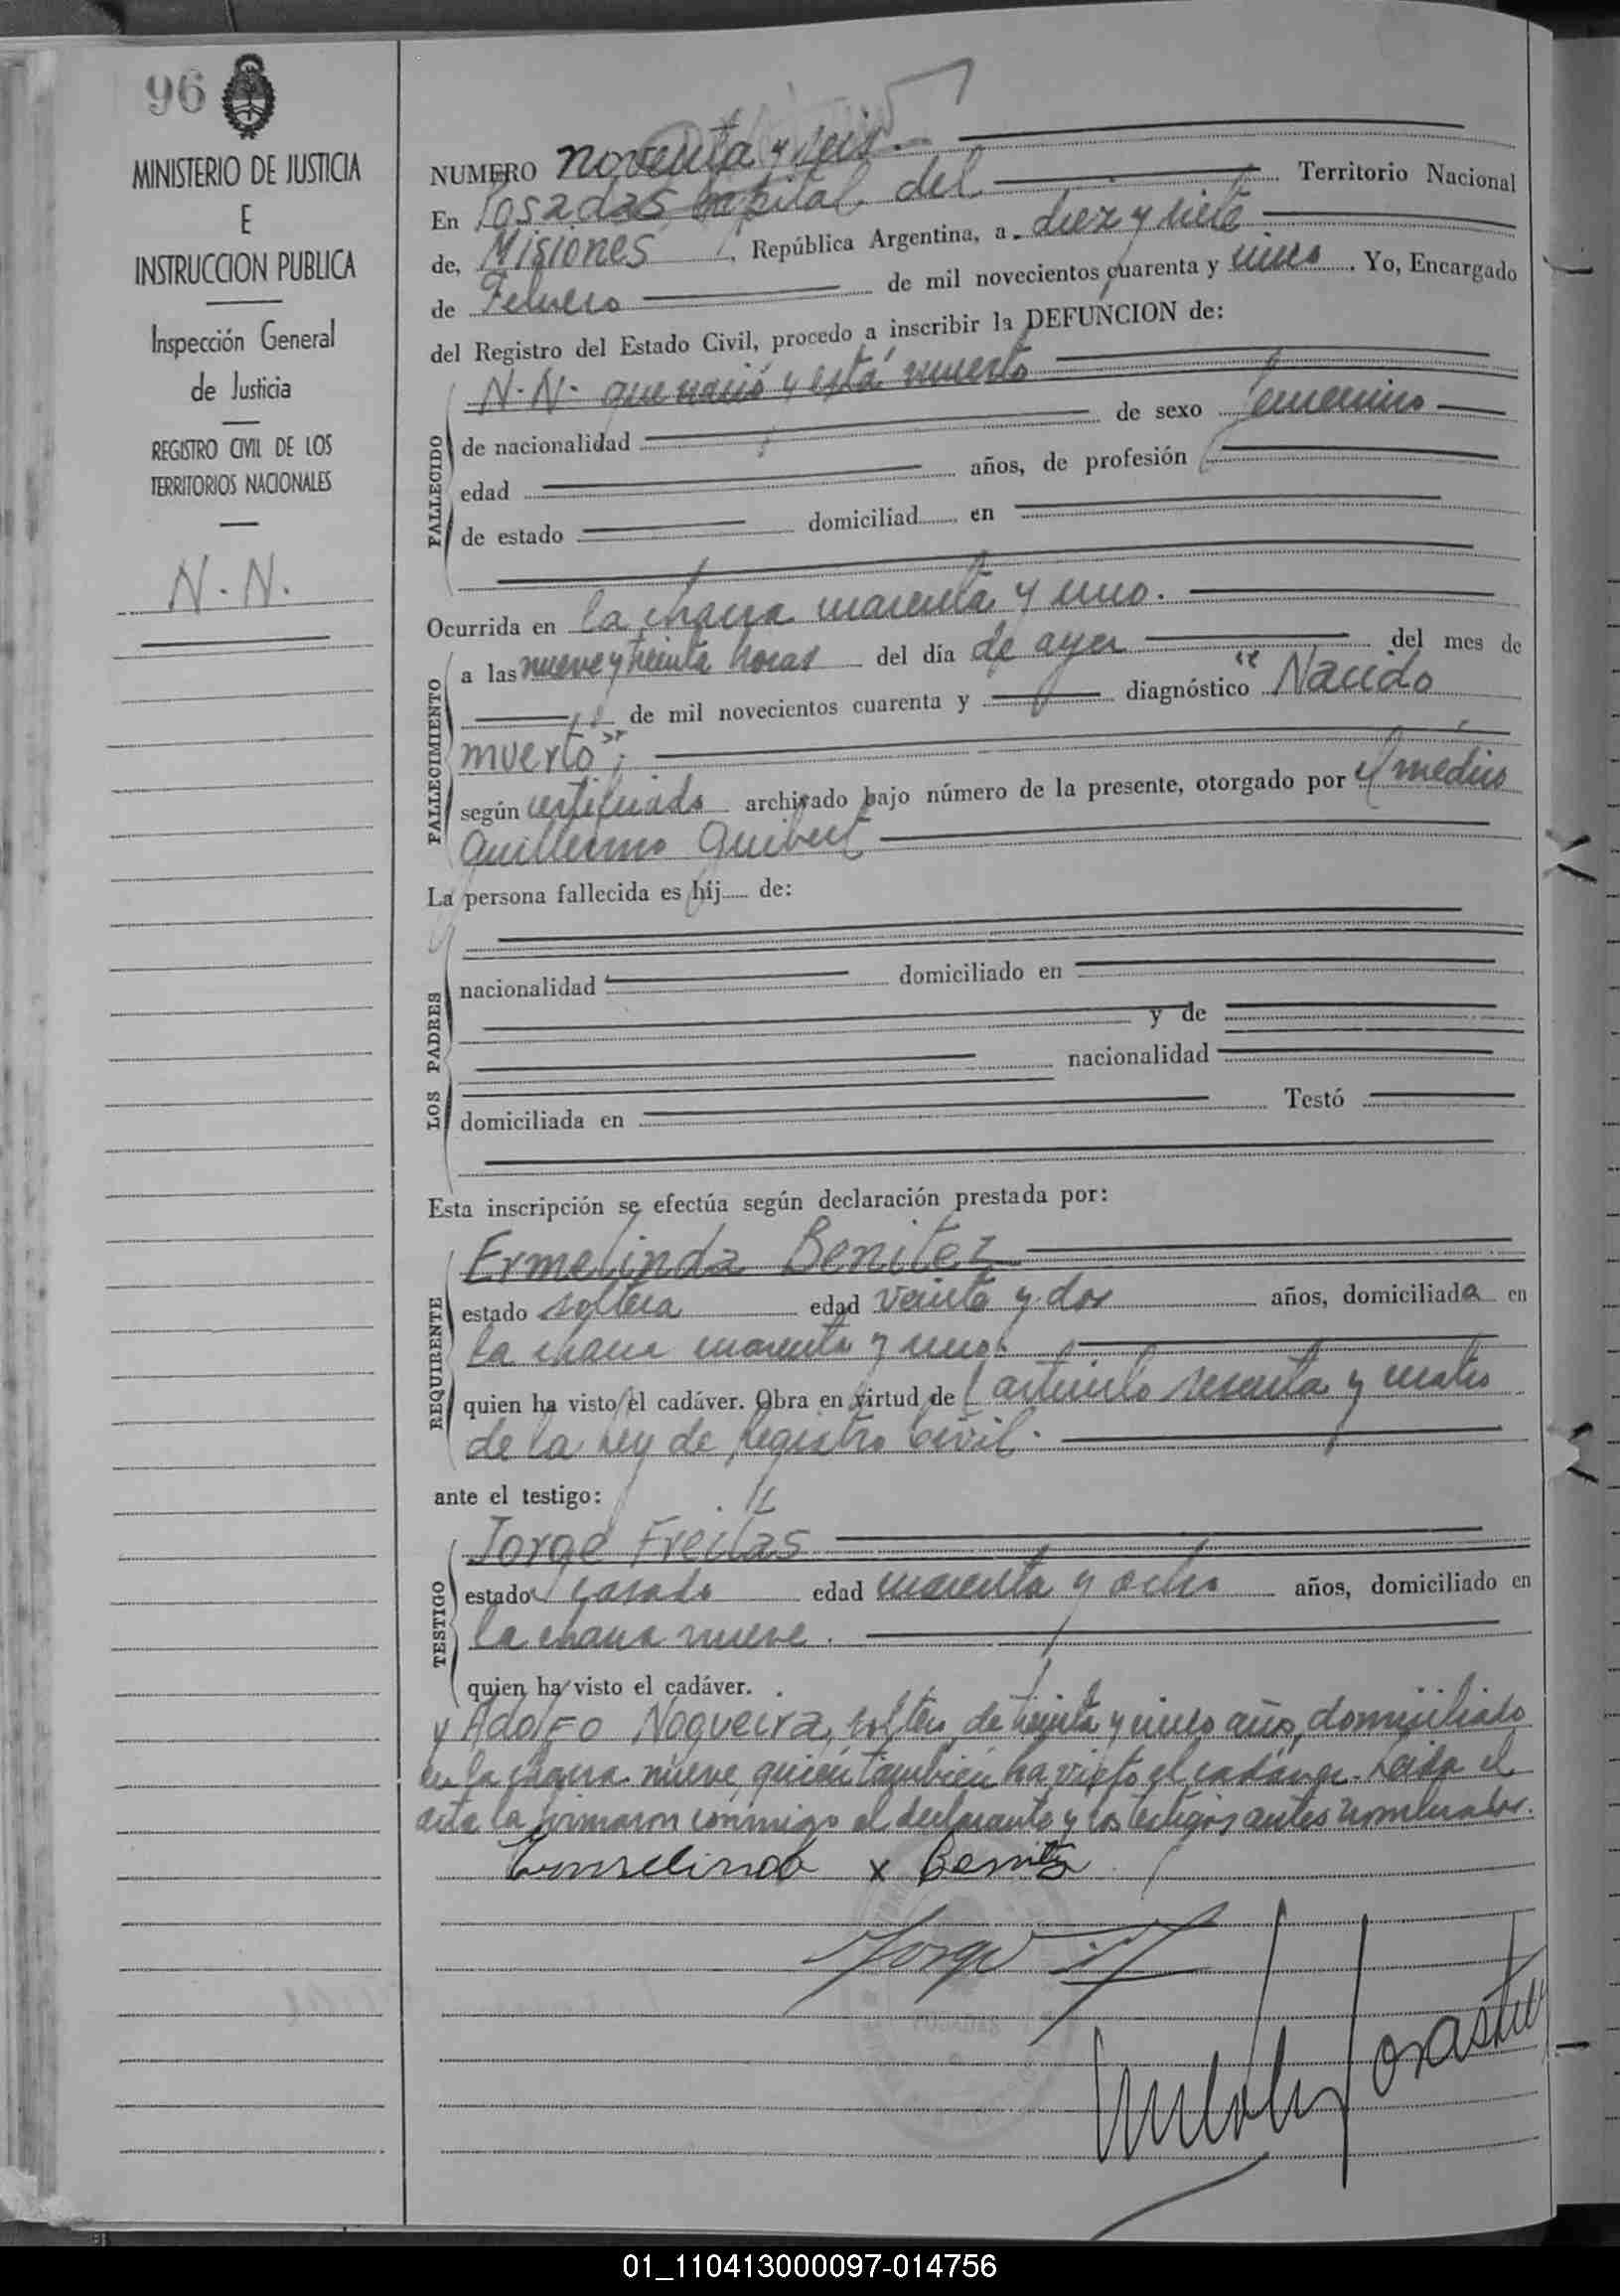 96
MINISTERIO DE JUSTICIA
E
INSTRUCCION PUBLICA
Inspección General
de Justicia
REGISTRO CIVIL DE LOS
TERRITORIOS NACIONALES
N. N.
NUMERO noventa y seis.
En Posadas Capital del Territorio Nacional
de, Misiones, República Argentina, a diez y siete
de Febrero de mil novecientos cuarenta y cinco. Yo, Encargado
del Registro del Estado Civil, procedo a inscribir la DEFUNCION de:
N. N. que nació y está muerto
FALLECIDO
de nacionalidad de sexo femenino
edad años, de profesión
de estado domiciliad en
Ocurrida en la chacra cuarenta y uno.
FALLECIMIENTO
a las nueve y treinta horas del día de ayer del mes de
de mil novecientos cuarenta y diagnóstico "Nacido
muerto";
según certificado archivado bajo número de la presente, otorgado por el médico
Guillermo Guibert
La persona fallecida es hij de:
LOS PADRES
nacionalidad domiciliado en
y de
nacionalidad
domiciliada en Testó
Esta inscripción se efectúa según declaración prestada por:
REQUIRENTE
Ermelinda Benitez
estado soltera edad veinte y dos años, domiciliada en
la chacra cuarenta y uno.
quien ha visto el cadáver. Obra en virtud de artículo sesenta y cuatro
de la ley de Registro Civil.
ante el testigo:
TESTIGO
Jorge Freitas
estado casado edad cuarenta y ocho años, domiciliado en
la chacra nueve.
quien ha visto el cadáver.
y Adolfo Nogueira, soltero, de treinta y cinco años, domiciliado
en la chacra nueve quien también ha visto el cadáver. Leida el
acta la firmaron conmigo el declarante y los testigos antes nombrados.
Ermelinda x Benitez
Jorge
01_110413000097-014756